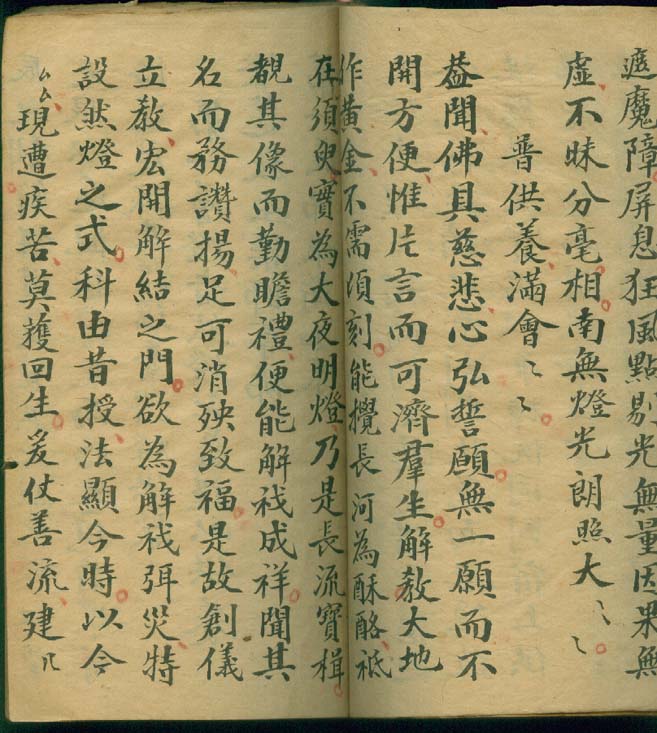 遮魔障屏息狂風點剔光無量因果無
虛不昧分毫相南無燈光朗照大〻〻
普供養滿會〻〻
葢聞佛具慈悲心弘誓願無一願而不
開方便惟片言而可濟羣生解教大地
作黃金不需頃刻能攪長河為酥酪袛
在須臾實為大夜明燈乃是長流寶楫
覩其像而勤瞻禮便能解祅成祥聞其
名而務讚揚足可消殃致福是故創儀
立教宏開解結之門欲為解祅弭災特
設然燈之式科由昔授法顯今時以今
厶厶現遭疾苦莫獲回生爰仗善流建